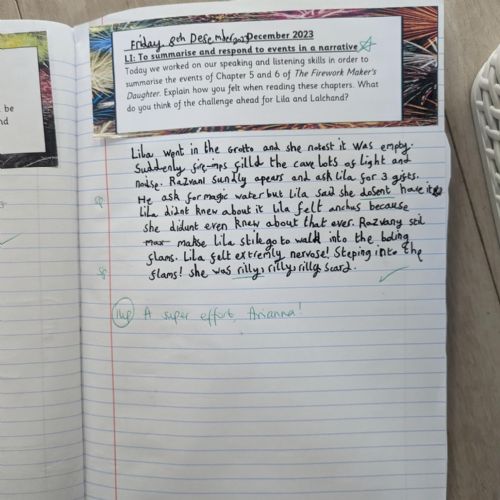 be
nd
Friday 8th Desember 2023 December 2023
LI: To summarise and respond to events in a narrative
Today we worked on our speaking and listening skills in order to
summarise the events of Chapter 5 and 6 of The Firework Maker's
Daughter. Explain how you felt when reading these chapters. What
do you think of the challenge ahead for Lila and Lalchand?
Lila went in the Grotto and she notest it was empty.
Suddenly fire-imps filld the cave lots of light and
noise. Razvani sundly apears and ask Lila for 3 gifts.
He ask for magic water but Lila said she dosent have it
Lila didnt knew about it Lila felt anchus because
she didunt even knew about that ever. Razvany stil
makse Lila stil go to walk into the boling
flams. Lila felt extremly nervose! Steping into the
flams! she was rilly, rilly, rilly scard.
sp
sp
1hp A super effort, Arianna!